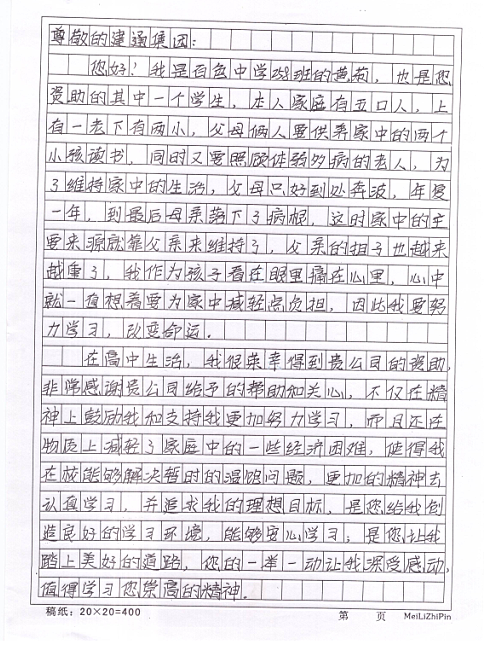 尊敬的建通集团:
您好!我是百色中学班的黄菊,也是您
资助的其中一个学生,本人家庭有五口人,上
有一老下有两小,父母俩人要供养家中的两个
小孩读书,同时又要照顾体弱多病的老人,为
了维持家中的生活,父母只好到处奔波,年复
一年,到最后母亲落下了病根,这时家中的主
要来源就靠父亲来维持了,父亲的担子也越来
越重了,我作为孩子看在眼里痛在心里,心中
就一直想着要为家中减轻点负担,因此我要努
力学习,改变命运.
在高中生活,我很荣幸得到贵公司的资助,
非常感谢贵公司给予的帮助和关心,不仅在精
神上鼓励我和支持我更加努力学习,而且还在
物质上减轻了家庭中的一些经济困难,使得我
在校能够解决暂时的温饱问题,更加的精神去
认真学习,并追求我的理想目标,是您给我创
造良好的学习环境,能够安心学习;是您让我
踏上美好的道路,您的一举一动让我深受感动,
值得学习您崇高的精神.
稿纸:20×20=400 第 页 MeiLiZhiPin